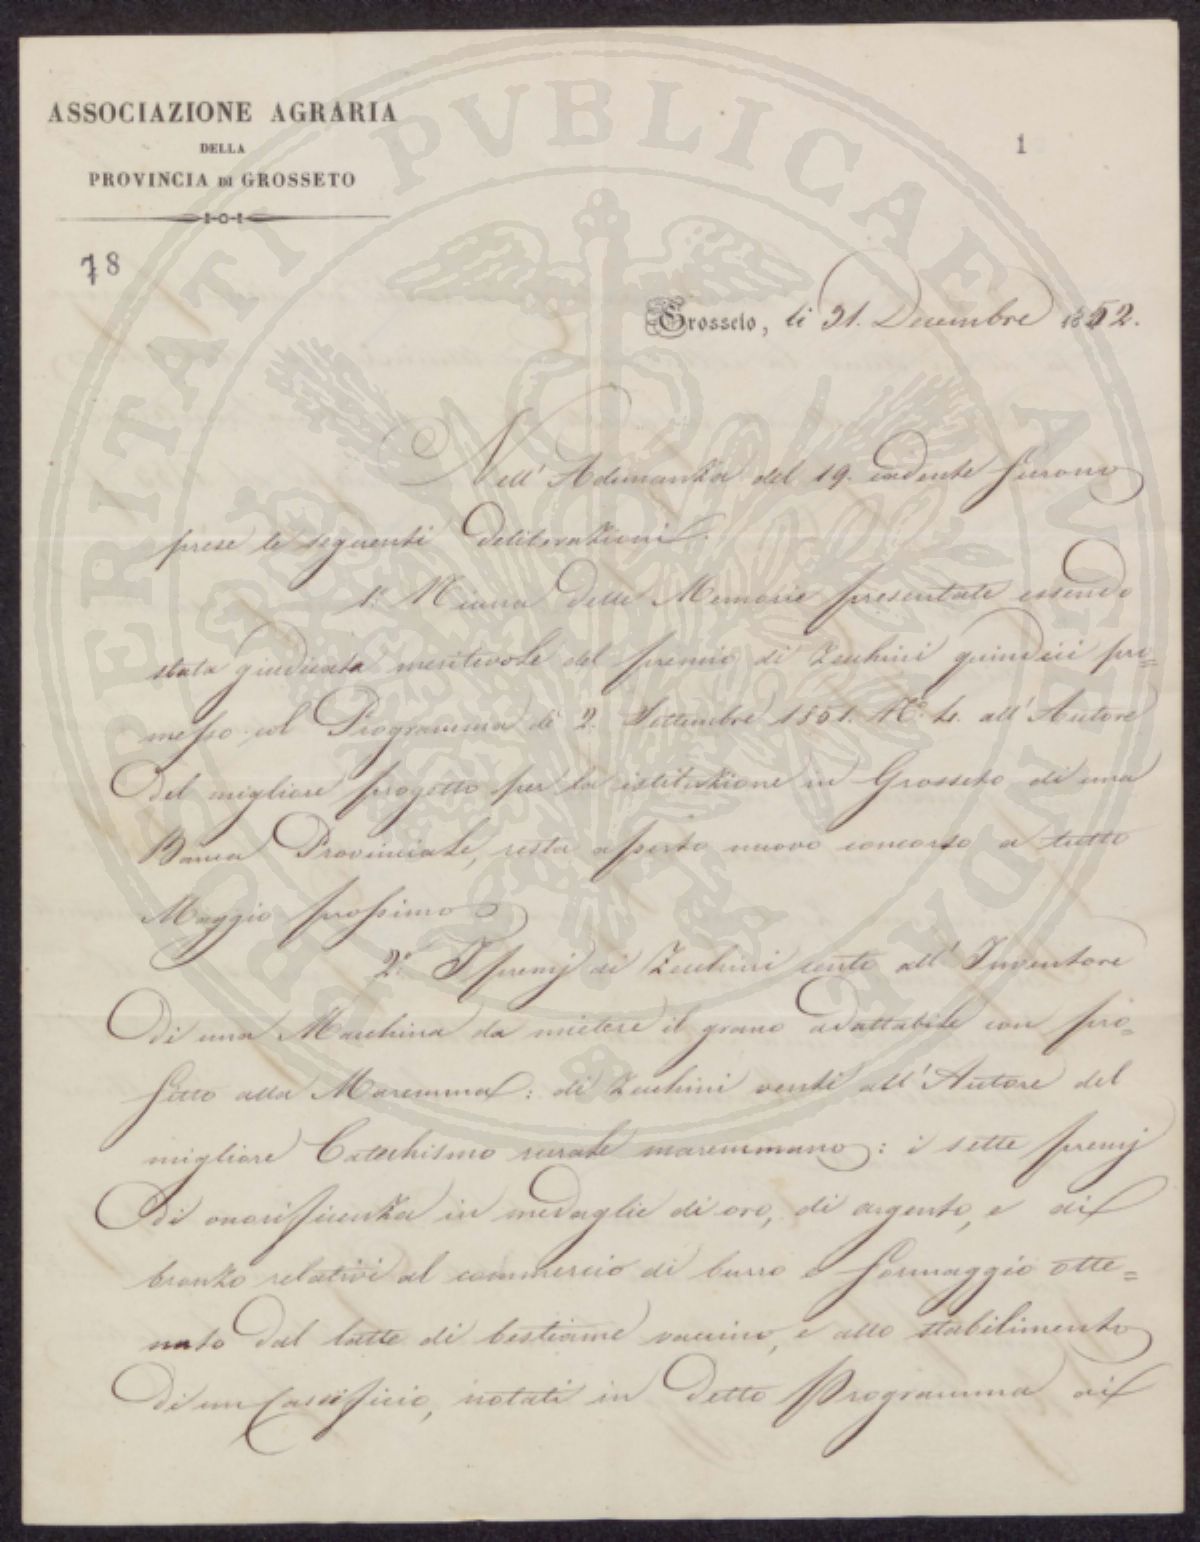 ASSOCIAZIONE AGRARIA
DELLA
PROVINCIA DI GROSSETO
1
78
Grosseto, li 31. Decembre 1852.
Nell' Adunanza del 19. cadente furono
prese le seguenti deliberazioni.
1.° Niuna delle Memorie presentate essendo
stata giudicata meritevole del premio di Zecchini quindici pro=
messo col Programma di 2. Settembre 1851. N.° 4. all' Autore
del migliore progetto per la istituzione in Grosseto di una
Banca Provinciale, resta aperto nuovo concorso a tutto
Maggio prossimo
2.° I premj di Zecchini cento all' Inventore
di una Macchina da mietere il grano adattabile con pro=
fitto alla Maremma: di Zecchini venti all' Autore del
migliore Catechismo rurale maremmano: i sette premj
di onorificenza in medaglie di oro, di argento, e di
bronzo relativi al commercio di burro e formaggio otte=
nuto dal latte di bestiame vaccino, e allo stabilimento
di un Caseificio, notati in detto Programma di
PUBLICAE PROSPERITATI AUGENDAE